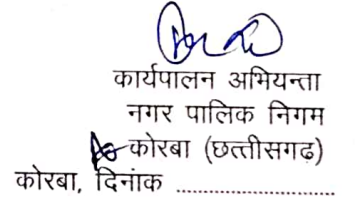 कार्यपालन अभियन्ता
नगर पालिक निगम
कोरबा (छत्तीसगढ़)
कोरबा, दिनांक ..............................